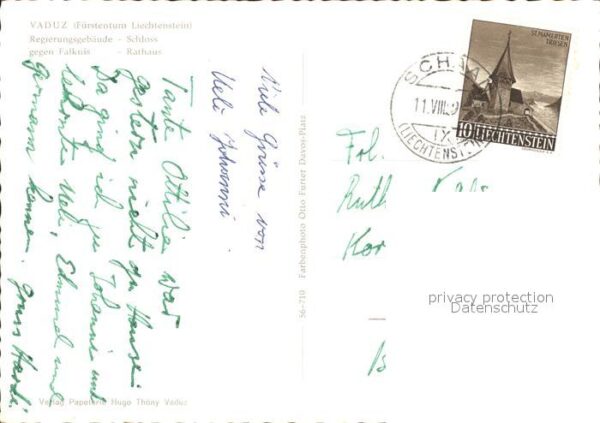 VADUZ (Fürstentum Liechtenstein)
Regierungsgebäude - Schloss
gegen Falknis - Rathaus
Tante Ottilie war
gestern nicht zu Hause.
Da ging ich zu Johanni und
lernte Ueli, Edmund und
Germann kennen. Gruss Hardi
Viele Grüsse von
Ueli Johanni.
Verlag Papeterie Hugo Thöny Vaduz
56-710 Farbenphoto Otto Furter Davos-Platz
ST. MAMERTEN
TRIESEN
10 LIECHTENSTEIN
SCHAA
11.VIII.
IX
(LIECHTENSTEIN
Frl.
Ruth
privacy protection
Datenschutz